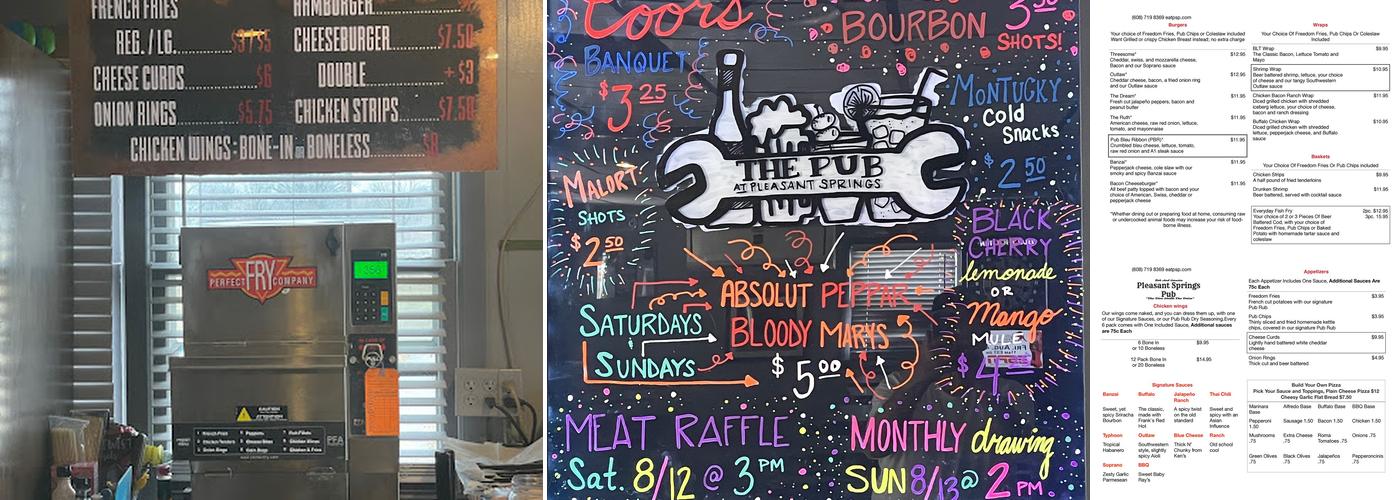 FRENCH FRIES
REG. / LG.
CHEESE CURDS $6
ONION RINGS $5.75
CHICKEN WINGS: BONE-IN BONELESS
HAMBURGER
CHEESEBURGER $7.50
DOUBLE + $3
CHICKEN STRIPS $7.50
PERFECT FRY COMPANY
350
CAUTION
Coors
BANQUET
$3.25
BOURBON
3.50
SHOTS!
MONTUCKY
Cold
Snacks
$2.50
THE PUB
AT PLEASANT SPRINGS
MALORT
SHOTS
$2.50
BLACK
CHERRY
lemonade
OR
Mango
MULE
ABSOLUT PEPPAR
BLOODY MARYS
SATURDAYS
SUNDAYS
$5.00
MEAT RAFFLE
Sat. 8/12 @ 3 PM
MONTHLY drawing
SUN 8/13 @ 2 PM.
(608) 719 8369 eatpsp.com
Burgers
Your choice of Freedom Fries, Pub Chips or Coleslaw included
Want Grilled or crispy Chicken Breast instead, no extra charge
Threesome* $12.95
Cheddar, swiss, and mozzarella cheese,
Bacon and our Soprano sauce
Outlaw* $12.95
Cheddar cheese, bacon, a fried onion ring
and our Outlaw sauce
The Dream* $11.95
Fresh cut jalapeño peppers, bacon and
peanut butter
The Ruth* $11.95
American cheese, raw red onion, lettuce,
tomato, and mayonnaise
Pub Bleu Ribbon (PBR)* $11.95
Crumbled bleu cheese, lettuce, tomato,
raw red onion and A1 steak sauce
Banzai* $11.95
Pepperjack cheese, cole slaw with our
smoky and spicy Banzai sauce
Bacon Cheeseburger* $11.95
All beef patty topped with bacon and your
choice of American, Swiss, cheddar or
pepperjack cheese
*Whether dining out or preparing food at home, consuming raw
or undercooked animal foods may increase your risk of food-
borne illness.
Wraps
Your Choice Of Freedom Fries, Pub Chips Or Coleslaw
Included
BLT Wrap $9.95
The Classic Bacon, Lettuce Tomato and
Mayo
Shrimp Wrap $10.95
Beer battered shrimp, lettuce, your choice
of cheese and our tangy Southwestern
Outlaw sauce
Chicken Bacon Ranch Wrap $11.95
Diced grilled chicken with shredded
iceberg lettuce, your choice of cheese,
bacon and ranch dressing
Buffalo Chicken Wrap $10.95
Diced grilled chicken with shredded
lettuce, pepperjack cheese, and Buffalo
sauce
Baskets
Your Choice Of Freedom Fries Or Pub Chips included
Chicken Strips $9.95
A half pound of fried tenderloins
Drunken Shrimp $11.95
Beer battered, served with cocktail sauce
Everyday Fish Fry 2pc. $12.95
Your choice of 2 or 3 Pieces Of Beer 3pc. 15.95
Battered Cod, with your choice of
Freedom Fries, Pub Chips or Baked
Potato with homemade tartar sauce and
coleslaw
(608) 719 8369 eatpsp.com
Pleasant Springs
Pub
Chicken wings
Our wings come naked, and you can dress them up, with one
of our Signature Sauces, or our Pub Rub Dry Seasoning.Every
6 pack comes with One Included Sauce, Additional sauces
are 75c Each
6 Bone In $9.95
or 10 Boneless
12 Pack Bone In $14.95
or 20 Boneless
Signature Sauces
Banzai Buffalo Jalapeño Ranch Thai Chili
Sweet, yet spicy Sriracha Bourbon
The classic, made with Frank's Red Hot
A spicy twist on the old standard
Sweet and spicy with an Asian Influence
Typhoon Outlaw Blue Cheese Ranch
Tropical Habanero
Southwestern style, slightly spicy Aioli
Thick N' Chunky from Ken's
Old school cool
Soprano BBQ
Zesty Garlic Parmesean
Sweet Baby Ray's
Appetizers
Each Appetizer Includes One Sauce, Additional Sauces Are
75c Each
Freedom Fries $3.95
French cut potatoes with our signature
Pub Rub
Pub Chips $3.95
Thinly sliced and fried homemade kettle
chips, covered in our signature Pub Rub
Cheese Curds $9.95
Lightly hand battered white cheddar
cheese
Onion Rings $4.95
Thick cut and beer battered
Build Your Own Pizza
Pick Your Sauce and Toppings, Plain Cheese Pizza $12
Cheesy Garlic Flat Bread $7.50
Marinara Base Alfredo Base Buffalo Base BBQ Base
Pepperoni 1.50 Sausage 1.50 Bacon 1.50 Chicken 1.50
Mushrooms .75 Extra Cheese .75 Roma Tomatoes .75 Onions .75
Green Olives .75 Black Olives .75 Jalapeños .75 Pepperoncinis .75